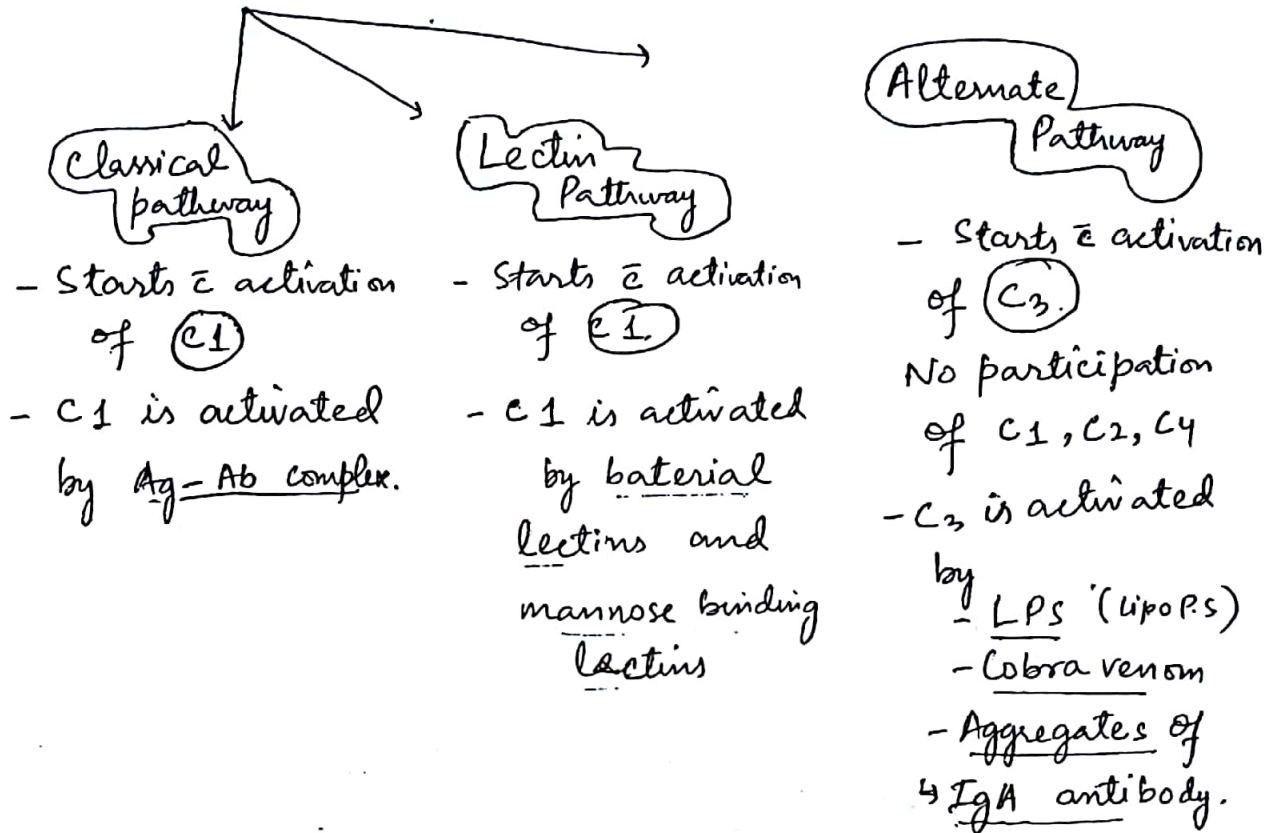 Classical
pathway
- Starts c̄ activation
of C1
- C1 is activated
by Ag-Ab complex.
Lectin
Pathway
- Starts c̄ activation
of C1.
- C1 is activated
by baterial
lectins and
mannose binding
lectins
Alternate
Pathway
- Starts c̄ activation
of C3.
No participation
of C1, C2, C4
- C3 is activated
by
- LPS (Lipo P.S)
- Cobra venom
- Aggregates of
↳ IgA antibody.